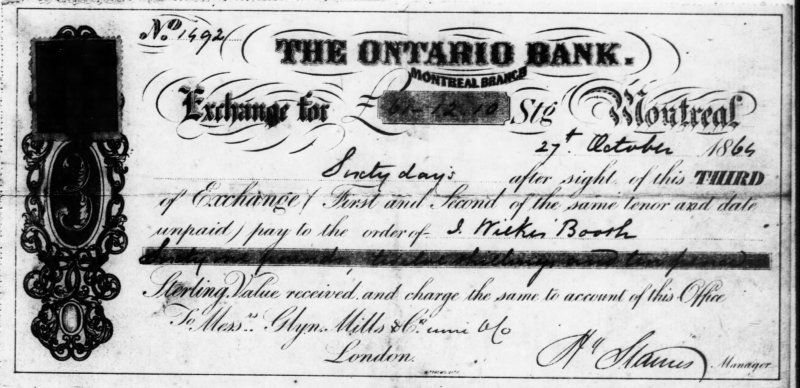 No 1492
THE ONTARIO BANK.
MONTREAL BRANCH
Exchange for £ 61-12-10 Stg Montreal
27t October 1864
Sixty days after sight of this THIRD
of Exchange (First and Second of the same tenor and date
unpaid) pay to the order of J. Wilkes Booth
Sixty one pounds, twelve shillings and ten pence
Sterling, Value received, and charge the same to account of this Office
To Messrs Glyn, Mills & Co
London.
Hy Starnes Manager
3